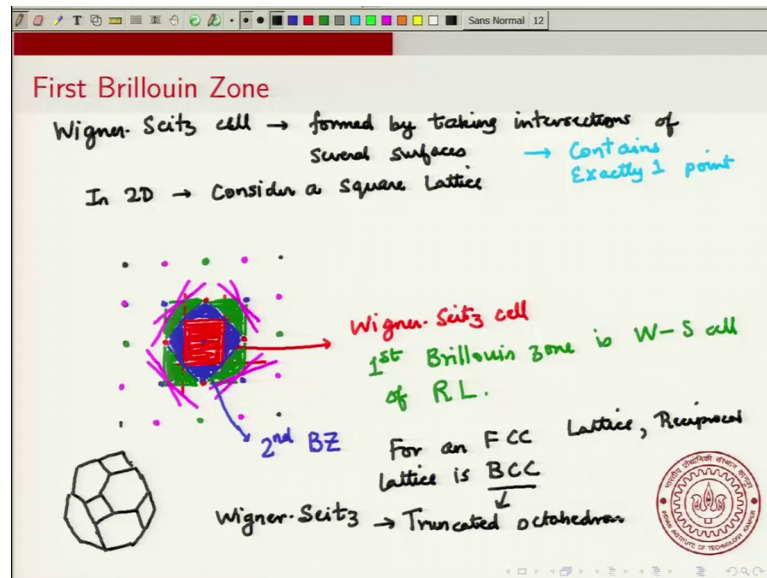 Sans Normal 12
First Brillouin Zone
Wigner-Seitz cell → formed by taking intersections of
several surfaces → Contains
Exactly 1 point
In 2D → Consider a square Lattice
Wigner-Seitz cell
1st Brillouin zone is W-S cell
of RL.
2nd BZ
For an FCC Lattice, Reciprocal
lattice is BCC
Wigner-Seitz → Truncated octahedron
INDIAN INSTITUTE OF TECHNOLOGY KANPUR